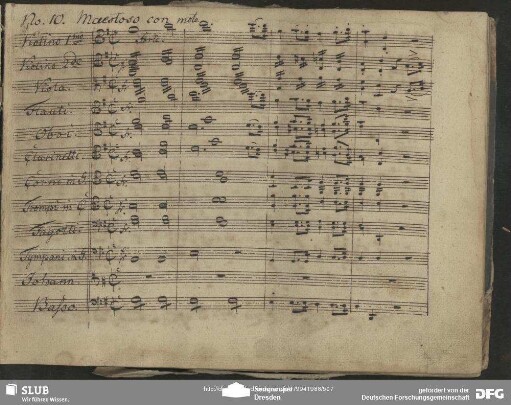 No. 10. Maestoso con moto
Violino 1mo
Violino 2do
Viola.
Flauti.
Oboi.
Clarinetti.
Corni in
Trompe in C
Fagotti.
Tympani in
Johann
Basso.
SLUB
Wir führen Wissen.
Dresden
gefördert von der
Deutschen Forschungsgemeinschaft
DFG